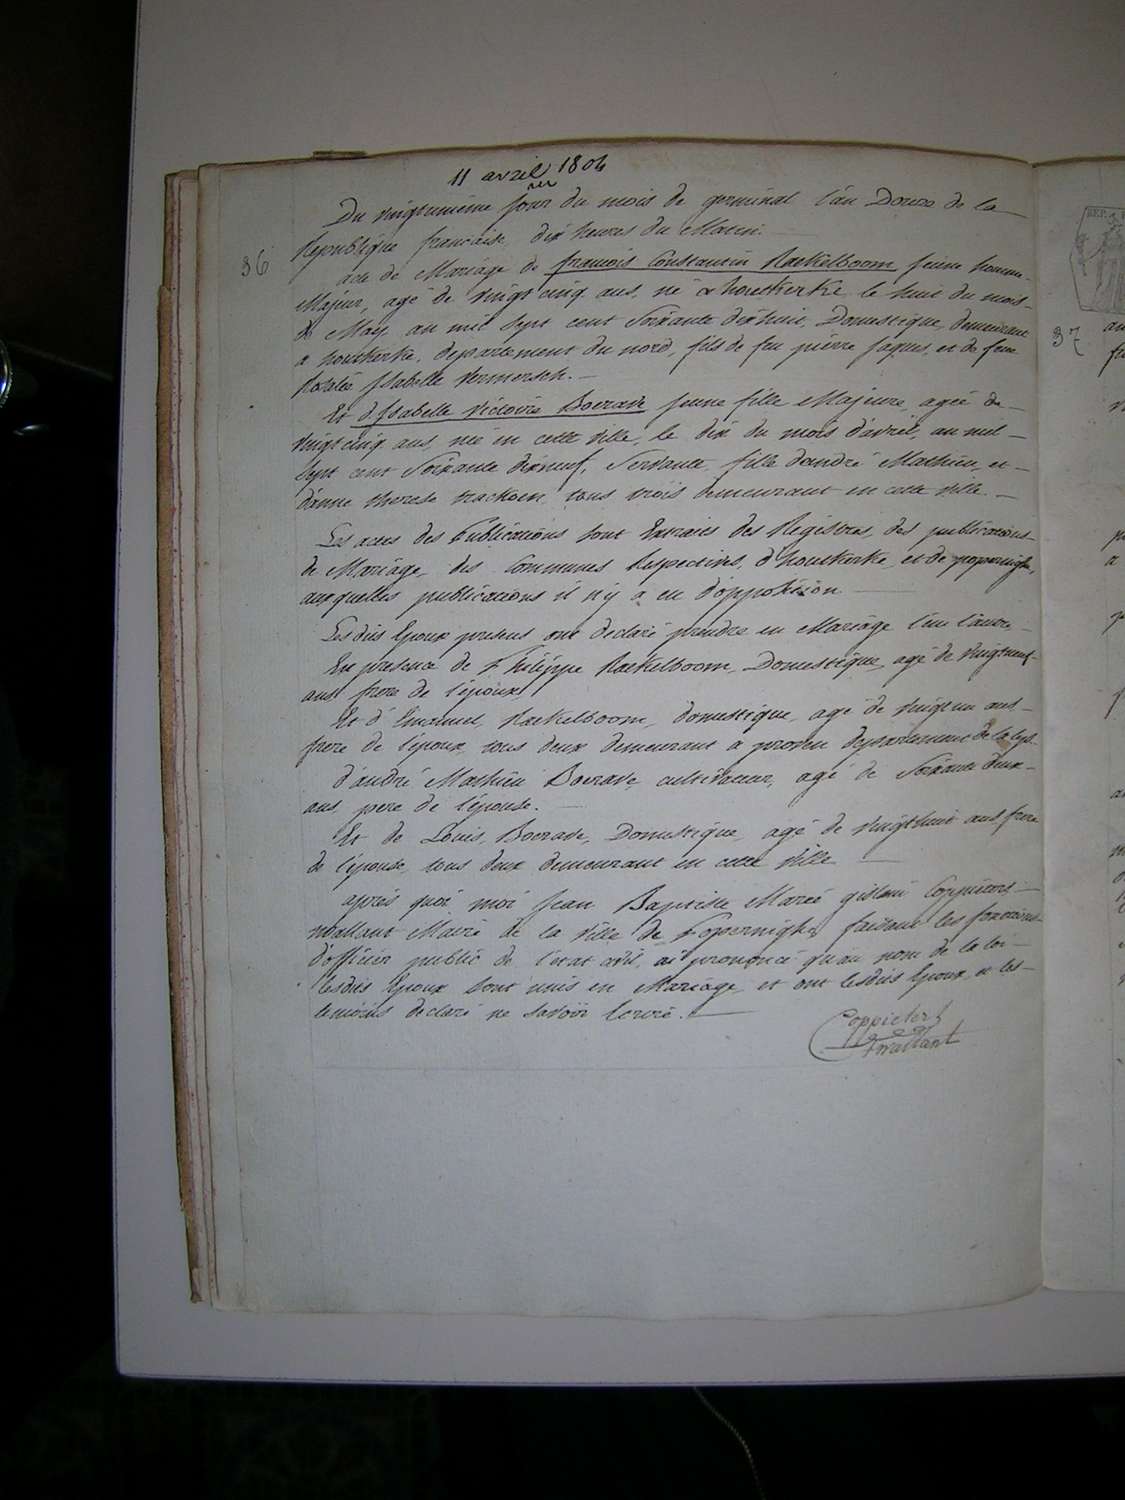 11 avril 1804
Du vingtunieme jour du mois de germinal l'an Douze de la
Republique francaise, dix heures du Matin.
36
acte de Mariage de francois Constantin Raekelboom jeune homme
Majeur, agé de vingt cinq ans, né a houtkerke le huit du mois
de May an mil sept cent soixante dix huit, Domestique, demeurant
a houtkerke, departement du nord, fils de feu pierre jaques, et de feue
Rosalie Isabelle Vermersch.
Et d'Isabelle Victoire Boerave jeune fille Majeure, agée de
vingt cinq ans, née en cette ville, le dix du mois d'avril, an mil
sept cent soixante dixneuf, Servante, fille d'andré Mathieu, et
d'anne therese tous trois demeurant en cette ville.
Les actes des Publications sont Extraits des Régistres, des publications
de Mariage, des Communes Respectives, d'houtkerke, et de poperinghe,
auxquelles publications il n'y a eu d'opposition
Lesdits Epoux presens ont declaré prendre en Mariage l'un l'autre,
En presence de Philippe Raekelboom, Domestique, agé de vingtneuf
ans, frere de l'époux,
Et d'Emanuel Raekelboom, domestique, agé de vingt un ans
frere de l'époux, tous deux demeurant a proven departement de la lys
d'andré Mathieu Boerave, cultivateur, agé de Soixante deux
ans, pere de l'épouse.
Et de Louis Boerave, Domestique, agé de vingthuit ans, frere
de l'épouse, tous deux demeurant en cette ville
aprés quoi moi Jean Baptiste Marie gislain Coppieters
Maire de la Ville de Poperinghe, faisant les fonctions
d'officier public de l'état civil, ai prononcé qu'au nom de la loi
lesdits Epoux sont unis en Mariage, et ont lesdits Epoux, et les
temoins declaré ne savoir ecrire.
Coppieters
37